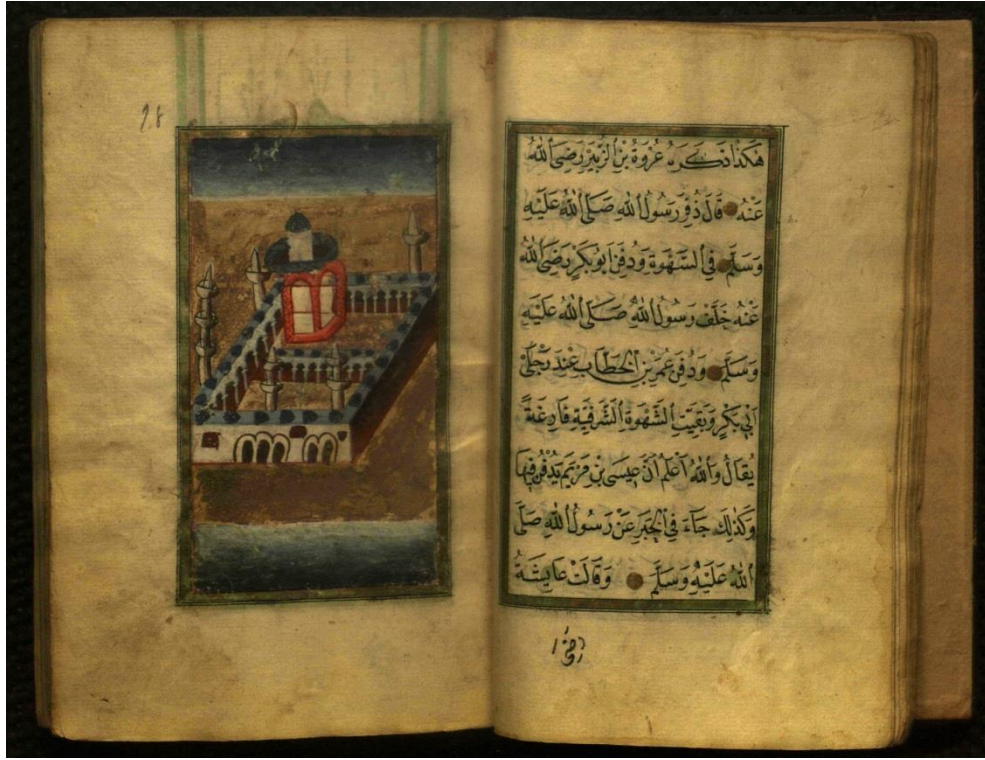 هٰكَذَا ذَكَرَهُ عُرْوَةُ بْنُ الزُّبَيْرِ رَضِيَ اللّٰهُ
عَنْهُ قَالَ دُفِنَ رَسُولُ اللّٰهِ صَلَّى اللّٰهُ عَلَيْهِ
وَسَلَّمَ فِي السَّهْوَةِ وَدُفِنَ اَبُو بَكْرٍ رَضِيَ اللّٰهُ
عَنْهُ خَلْفَ رَسُولِ اللّٰهِ صَلَّى اللّٰهُ عَلَيْهِ
وَسَلَّمَ وَدُفِنَ عُمَرُ بْنُ الْخَطَّابِ عِنْدَ رِجْلَيْ
اَبِي بَكْرٍ وَبَقِيَتِ السَّهْوَةُ الشَّرْقِيَّةُ فَارِغَةً
يُقَالُ وَاللّٰهُ اَعْلَمُ اَنَّ عِيسَى بْنَ مَرْيَمَ يُدْفَنُ فِيهَا
وَكَذٰلِكَ جَآءَ فِي الْخَبَرِ عَنْ رَسُولِ اللّٰهِ صَلَّى
اللّٰهُ عَلَيْهِ وَسَلَّمَ وَقَالَتْ عَايِشَةُ
رَضِيَ